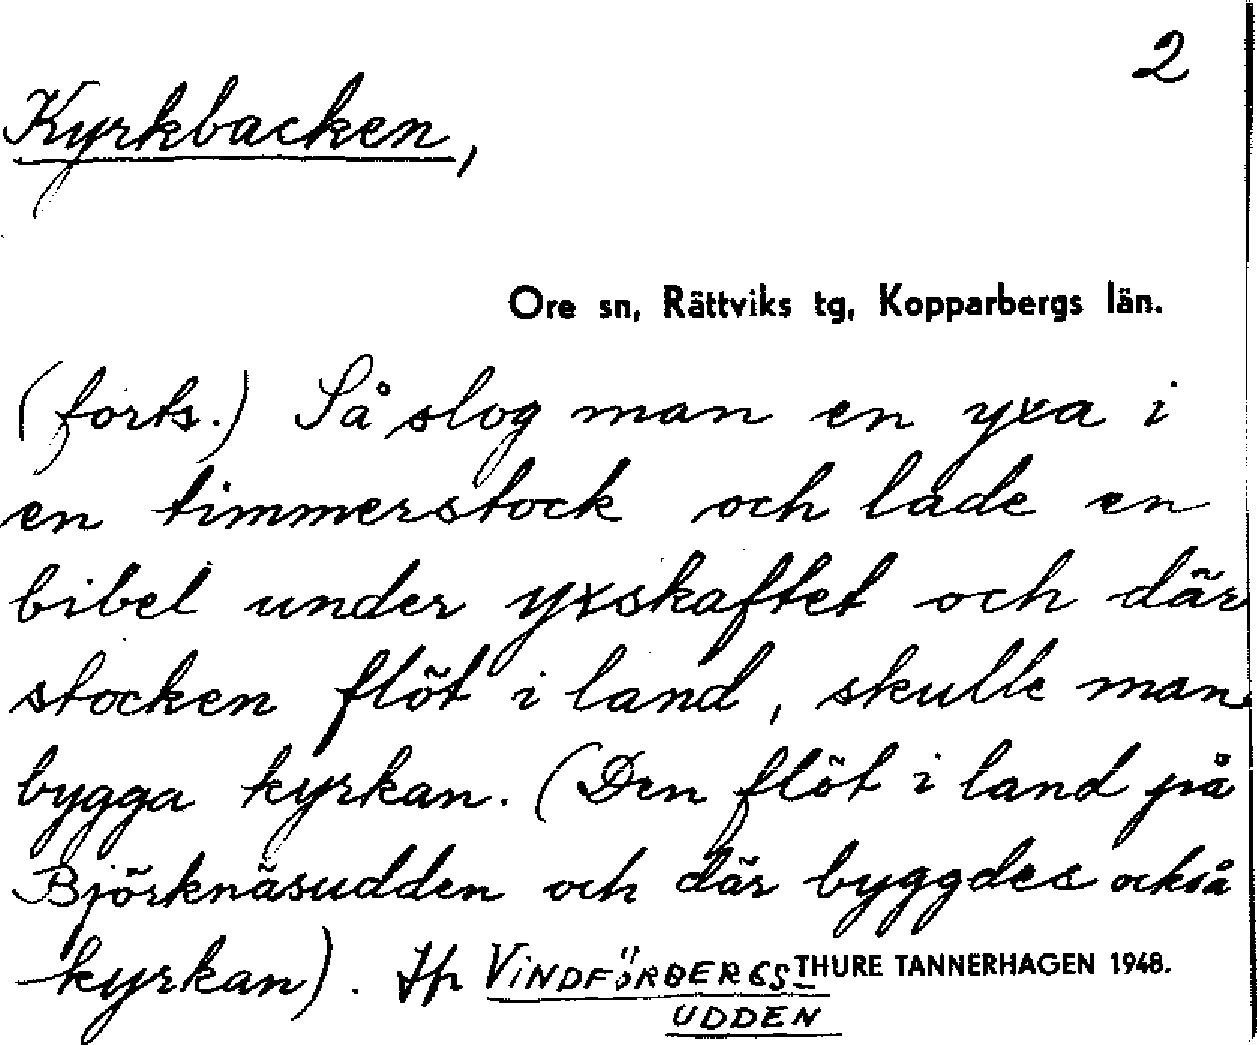 2
Kyrkbacken,
Ore sn, Rättviks tg, Kopparbergs län.
(forts.) Så slog man en yxa i
en timmerstock och lade en
bibel under yxskaftet och där
stocken flöt i land, skulle man
bygga kyrkan. (Den flöt i land på
Björknäsudden och där byggdes också
kyrkan). Jfr VINDFÖRBERGS- THURE TANNERHAGEN 1948.
UDDEN